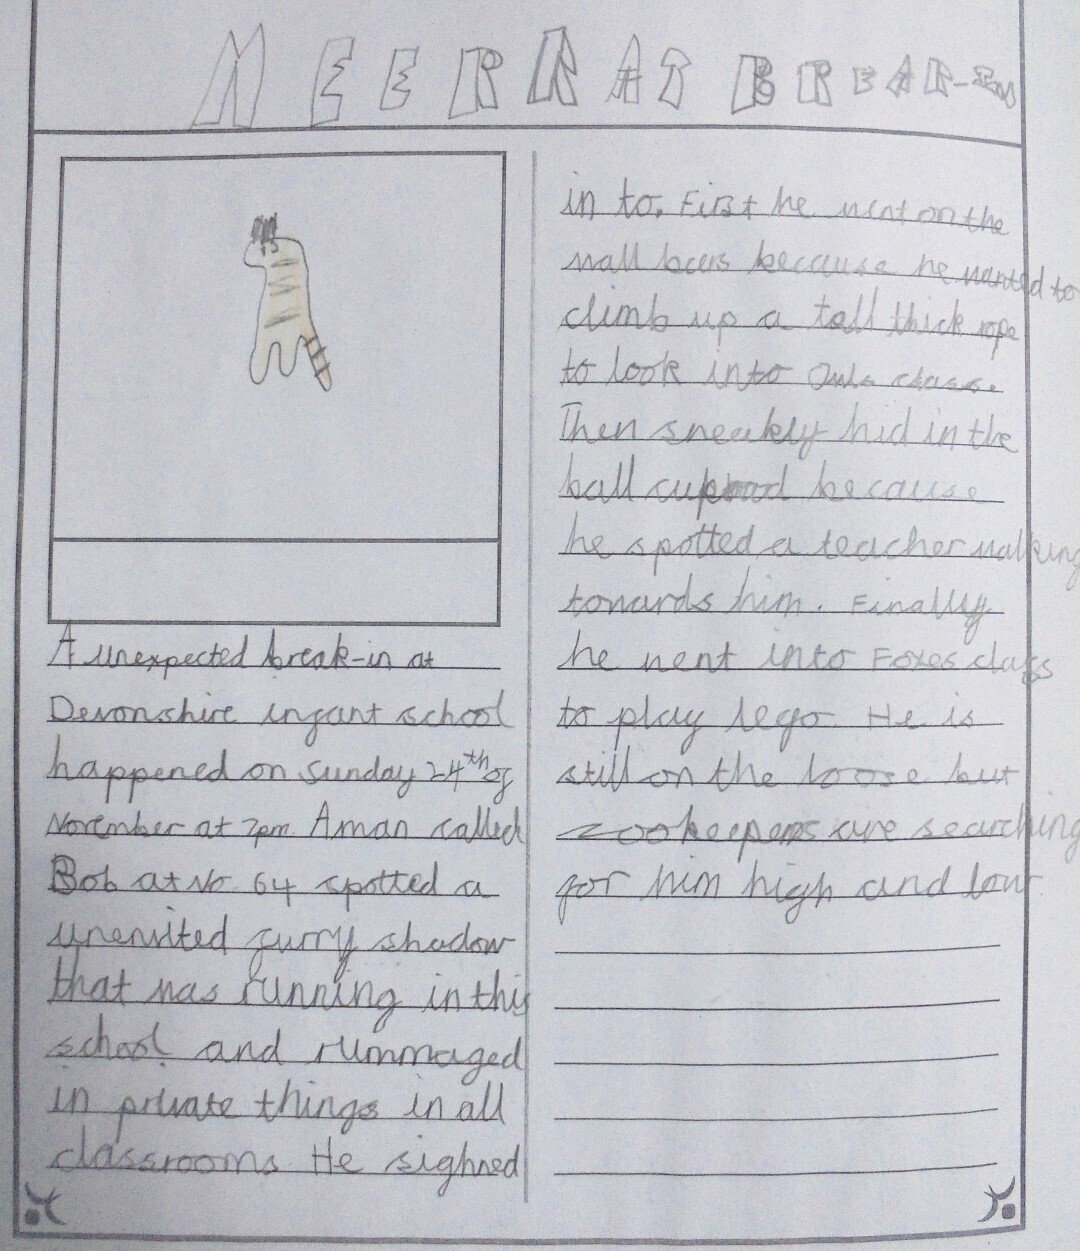 MEERKAT BREAK-IN
A unexpected break-in at
Devonshire infant school
happened on Sunday 24th of
November at 7pm A man called
Bob at No 64 spotted a
unenvited furry shadow
that was running in this
school and rummaged
in private things in all
classrooms He sighned
in to. First he went on the
wall bars because he wanted to
climb up a tall thick rope
to look into Owls class.
Then sneakly hid in the
ball because
he spotted a teacher walking
towards him. Finally
he went into Foxes class
to play lego He is
still on the loose but
zookeepers are searching
for him high and low